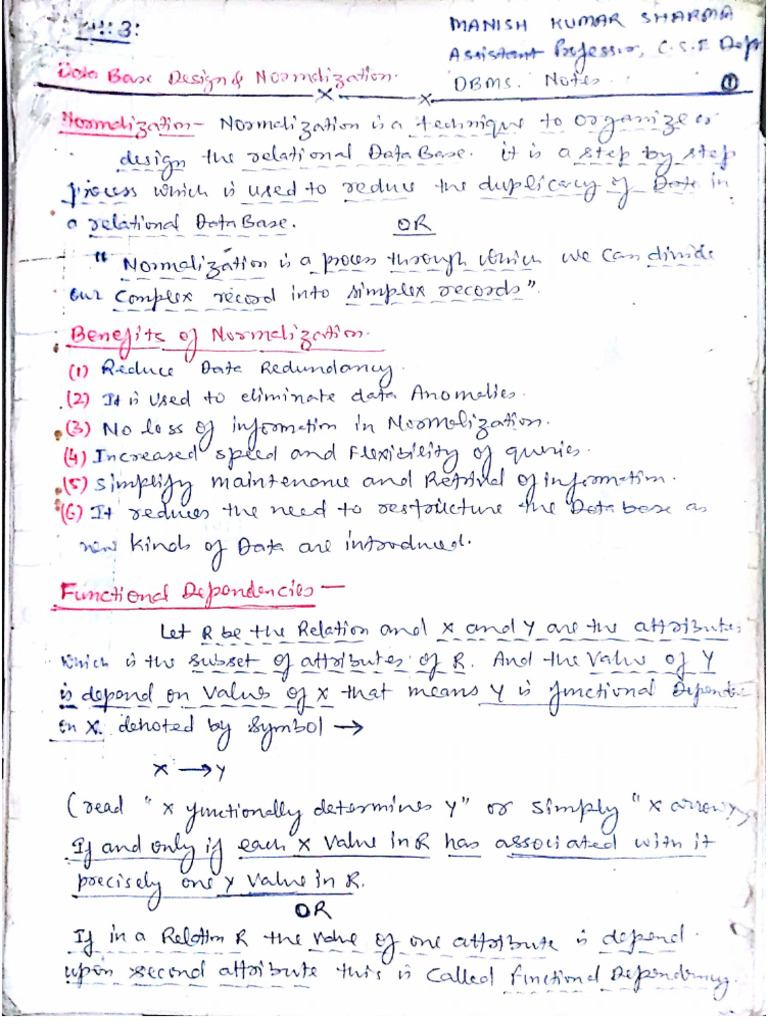 MANISH KUMAR SHARMA
Assistant Professor, C.S.E Dept
Data Base Design & Normalization.
DBMS. Notes..
1
Normalization- Normalization is a technique to organize or
design the relational DataBase. it is a step by step
process which is used to reduce the duplicacy of Data in
a relational DataBase.
OR
"Normalization is a process through which we can divide
our complex record into simplex records".
Benefits of Normalization.
(1) Reduce Data Redundancy.
(2) It is used to eliminate data Anomalies.
(3) No loss of information in Normalization.
(4) Increased speed and Flexibility of queries.
(5) Simplify maintenance and Retrival of information.
(6) It reduces the need to restructure the Data base as
new kinds of Data are introduced.
Functional Dependencies—
Let R be the Relation and X and Y are the attributes
which is the subset of attributes of R. And the Value of Y
is depend on Values of X that means Y is functional Dependent
on X. denoted by symbol →
X → Y
(read "X functionally determines Y" or simply "X arrow Y")
If and only if each X value in R has associated with it
precisely one Y value in R.
OR
If in a Relation R the value of one attribute is depend
upon second attribute this is called functional Dependency.